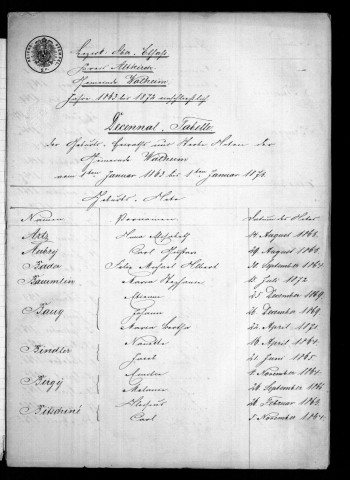 Bezirk Ober-Elsaß
Kreis Altkirch
Gemeinde Walheim
Jahre 1863 bis 1872 einschließlich
Decennal-Tabelle
der Geburts-, Heiraths- und Sterbe-Akten der
Gemeinde Walheim
vom 1ten Januar 1863 bis 1ten Januar 1873.
Geburts-Akte
Namen Vornamen Datum der Akten
Arts 14 August 1868.
Aubry Carl 29 August 1868.
Bader Michael Albert 30 September 1864.
Baumlin Maria 11 Juli 1872
Etienne 25 December 1869
Baug Johann 26 December 1869
Maria Bertha 22 April 1871
Bindler 16 April 1864.
Jacob 21 Juni 1865.
Amelie 4 November 1864.
Bergy Melanie 26 September 1865
Betschine 26 Februar 1863.
Carl 5 November 1864.